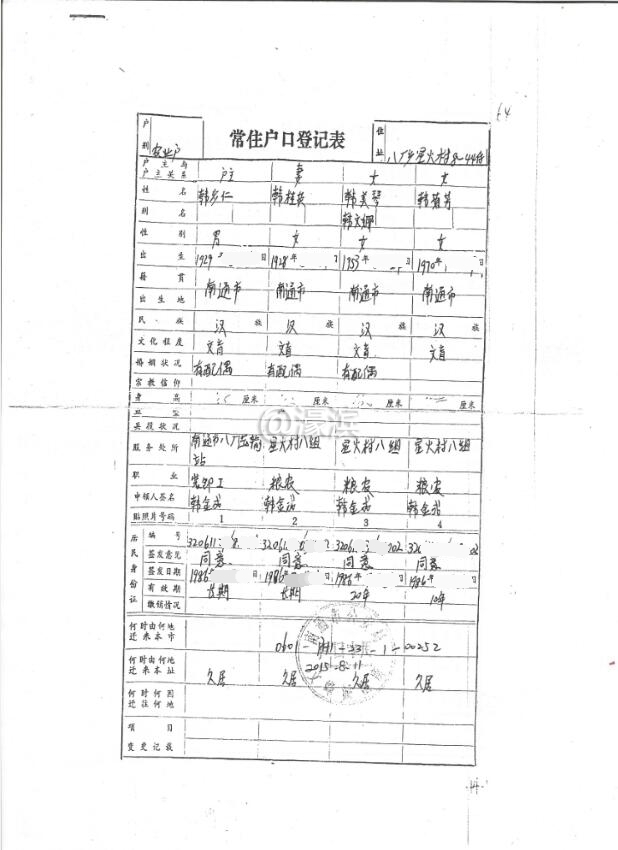 64
户别 农业户
常住户口登记表
住址 八厂乡星火村8-44
户主与户主关系 户主 妻 女 女
姓名 韩 仁 韩桂英 韩美琴 韩菊芳
别名 韩文娜
性别 男 女 女 女
出生 1929 日 1928年 日 1953年 日 1970年 日
籍贯 南通市 南通市 南通市 南通市
出生地
民族 汉族 汉族 汉族 汉族
文化程度 文盲 文盲 文盲 文盲
婚姻状况 有配偶 有配偶 有配偶
宗教信仰
身高 厘米 厘米 厘米 厘米
血型
兵役状况
@濠滨
服务处所 南通市八厂运输站 星火村八组 星火村八组 星火村八组
职业 装卸工 粮农 粮农 粮农
申领人签名 韩金成 韩金成 韩金成 韩金成
贴照片号码 1 2 3 4
居民身份证
编号 320611 3206 3206 202 32
签发意见 同意 同意 同意 同意
签发日期 1986 日 1986年 日 1986年 日 1986年 日
有效期 长期 长期 20年 10年
缴销情况
何时由何地迁来本市
0601- -33-1-00252
2015-8-11
何时由何地迁来本址 久居 久居 久居 久居
何时何因迁往何地
项目
变更记载